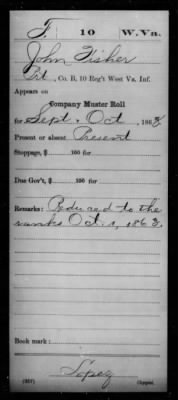 F. 10 W.Va.
John Fisher
Prt, Co. B, 10 Reg't West Va. Inf.
Appears on
Company Muster Roll
for Sept. & Oct., 1863
Present or absent Present
Stoppage, $ 100 for
Due Gov't, $ 100 for
Remarks: Reduced to the
ranks Oct. 1, 1863.
Book mark:
(357) Copyist.